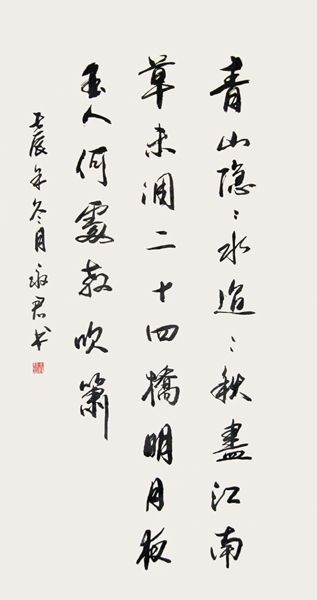 青山隐〻水迢〻秋盡江南
草未凋二十四橋明月夜
玉人何處教吹簫
壬辰年冬月君书